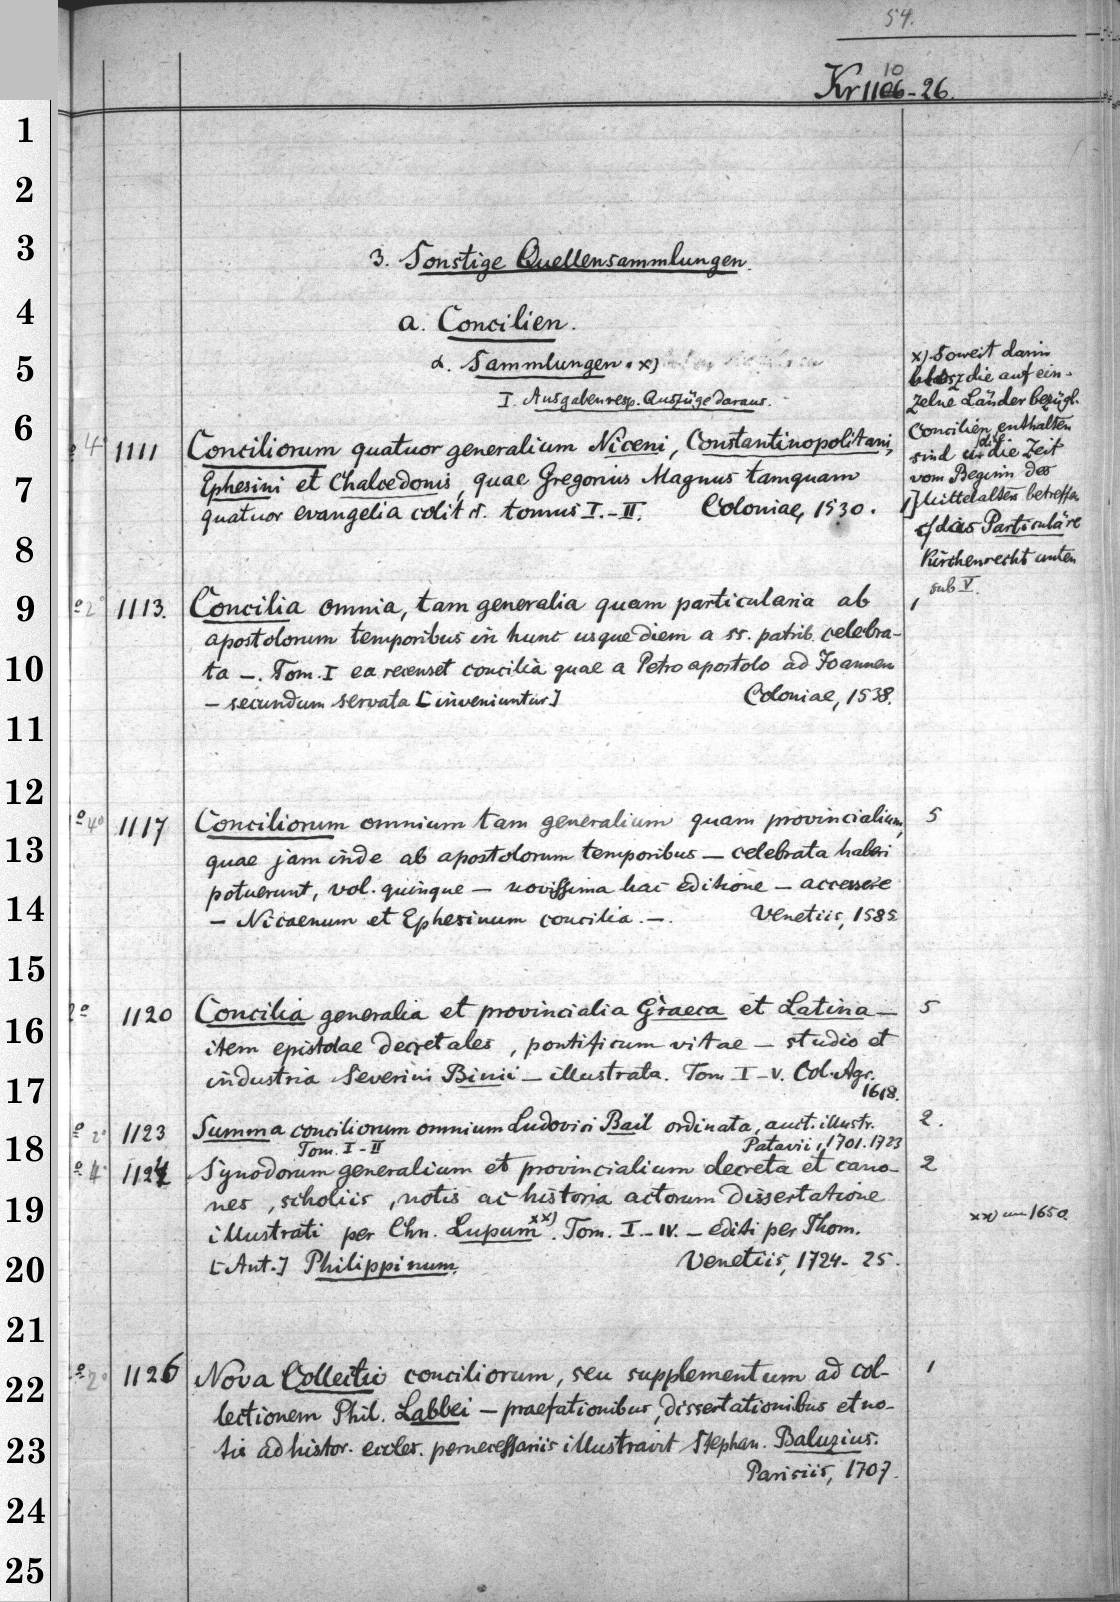 54.
Kr 1110-26.
3. Sonstige Quellensammlungen.
a. Concilien.
α. Sammlungen. x)
I. Ausgaben resp. Auszüge daraus.
x) Soweit darin
blosz die auf ein-
zelne Länder bezügl.
Concilien enthalten
sind die Zeit
vom Beginn des
Mittelalters betreffen
cf das Particuläre
Kirchenrecht unten
sub V.
4° 1111 Conciliorum quatuor generalium Niceni, Constantinopolitani,
Ephesini et Chalcedonis, quae Gregorius Magnus tamquam
quatuor evangelia colit et. tomus I.-II. Coloniae, 1530. 1
2° 1113. Concilia omnia, tam generalia quam particularia ab 1
apostolorum temporibus in hunc usque diem a ss. patrib. celebra-
ta —. Tom. I ea recenset concilia quae a Petro apostolo ad Joannem
— secundum servata [inveniuntur] Coloniae, 1538.
4° 1117 Conciliorum omnium tam generalium quam provincialium, 5
quae jam inde ab apostolorum temporibus — celebrata haberi
potuerunt, vol. quinque — novissima hac editione — accessere
— Nicaenum et Ephesinum concilia. —. Venetiis, 1585
2° 1120 Concilia generalia et provincialia Graeca et Latina — 5
item epistolae decretales, pontificum vitae — studio et
industria Severini Binii — illustrata. Tom I-V. Col. Agr.
1618.
2° 1123 Summa conciliorum omnium Ludovici Bail ordinata, auct. illustr. 2.
Tom. I-II Patavii, 1701. 1723
4° 1124 Synodorum generalium et provincialium decreta et cano- 2
nes, scholiis, notis ac historia actorum dissertatione
illustrati per Chn. Lupum xx). Tom. I-IV. — editi per Thom. xx) um 1650
[Ant.] Philippinum. Venetiis, 1724-25.
2° 1126 Nova Collectio conciliorum, seu supplementum ad col- 1
lectionem Phil. Labbei — praefationibus, dissertationibus et no-
tis ad histor. eccles. pernecessariis illustravit Stephan. Baluzius.
Parisiis, 1707.
1
2
3
4
5
6
7
8
9
10
11
12
13
14
15
16
17
18
19
20
21
22
23
24
25